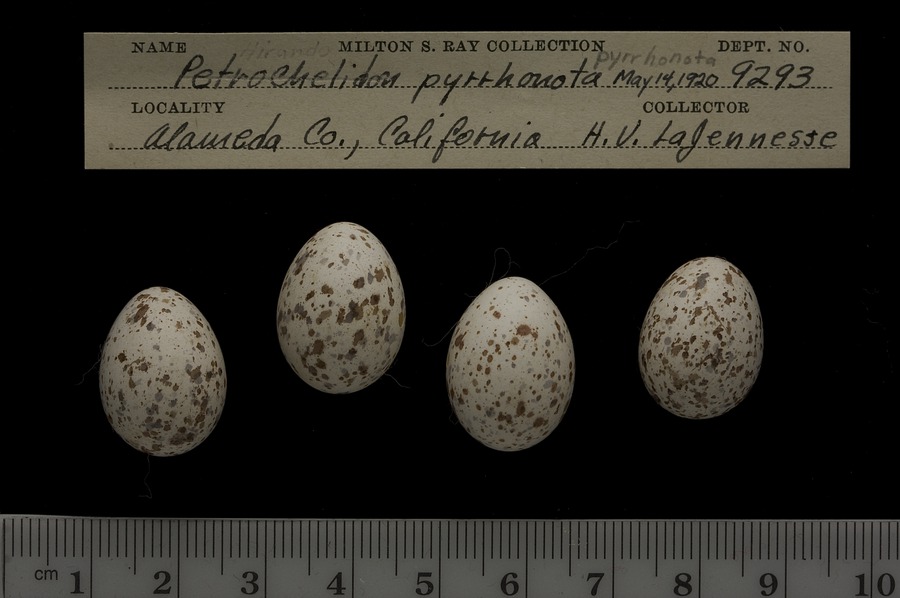 NAME Hirundo MILTON S. RAY COLLECTION pyrrhonota DEPT. NO.
Petrochelidon pyrrhonota May 14, 1920 9293
LOCALITY COLLECTOR
Alameda Co., California H.V. LaJennesse
cm 1 2 3 4 5 6 7 8 9 10